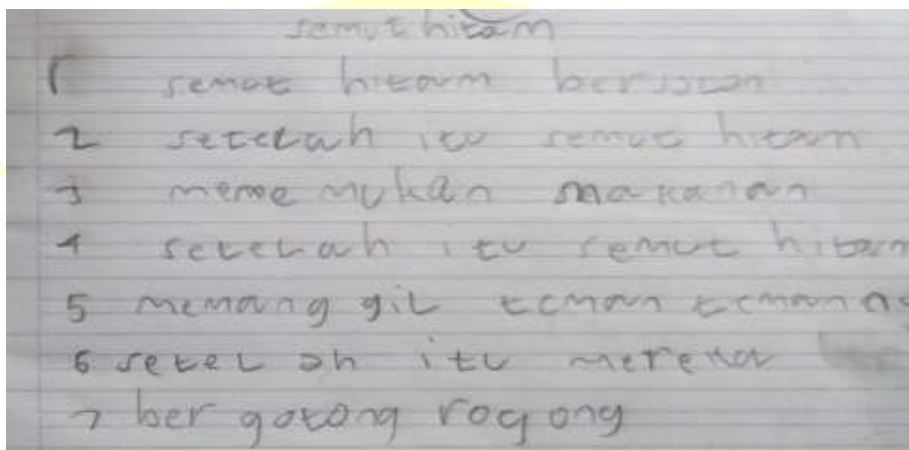 semut hitam
1 semut hitam berjalan
2 setelah itu semut hitam
3 meme mukan makanan
4 setelah itu semut hitam
5 memang gil teman teman
6 setel ah itu mereka
7 ber gotong rog ong